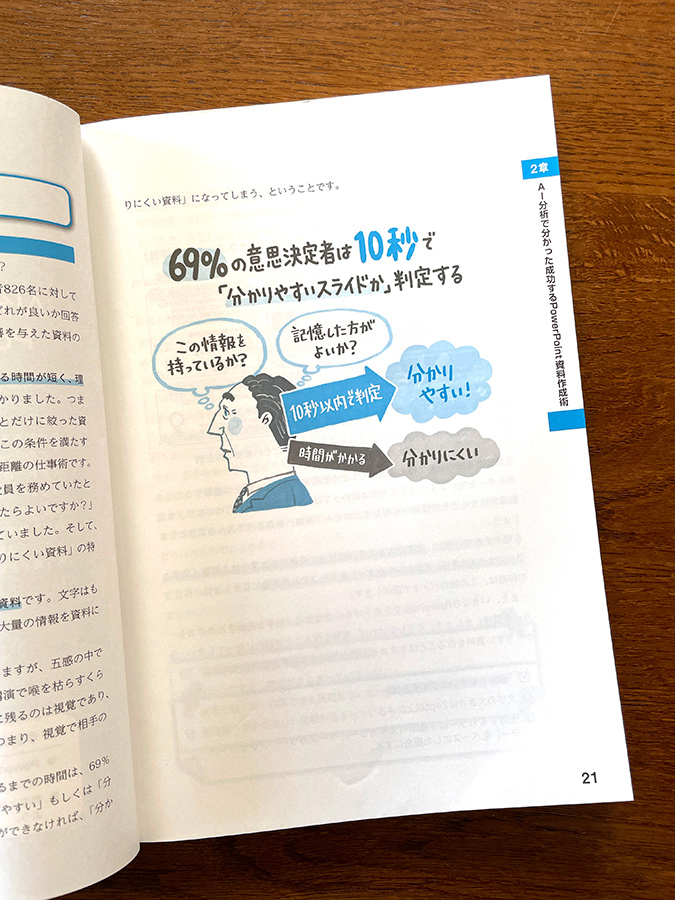 ?
者826名に対して
どれが良いか回答
響を与えた資料の
る時間が短く、理
かりました。つま
とだけに絞った資
この条件を満たす
距離の仕事術です。
員を務めていたと
たらよいですか?」
ていました。そして、
りにくい資料」の特
資料です。文字はも
大量の情報を資料に
ますが、五感の中で
講演で喉を枯らすくら
に残るのは視覚であり、
つまり、視覚で相手の
るまでの時間は、69%
やすい」もしくは「分
ができなければ、「分か
りにくい資料」になってしまう、ということです。
69%の意思決定者は10秒で
「分かりやすいスライドか」判定する
この情報を
持っているか?
記憶した方が
よいか?
10秒以内で判定
分かり
やすい!
時間がかかる
分かりにくい
2章
AI分析で分かった成功するPowerPoint資料作成術
21